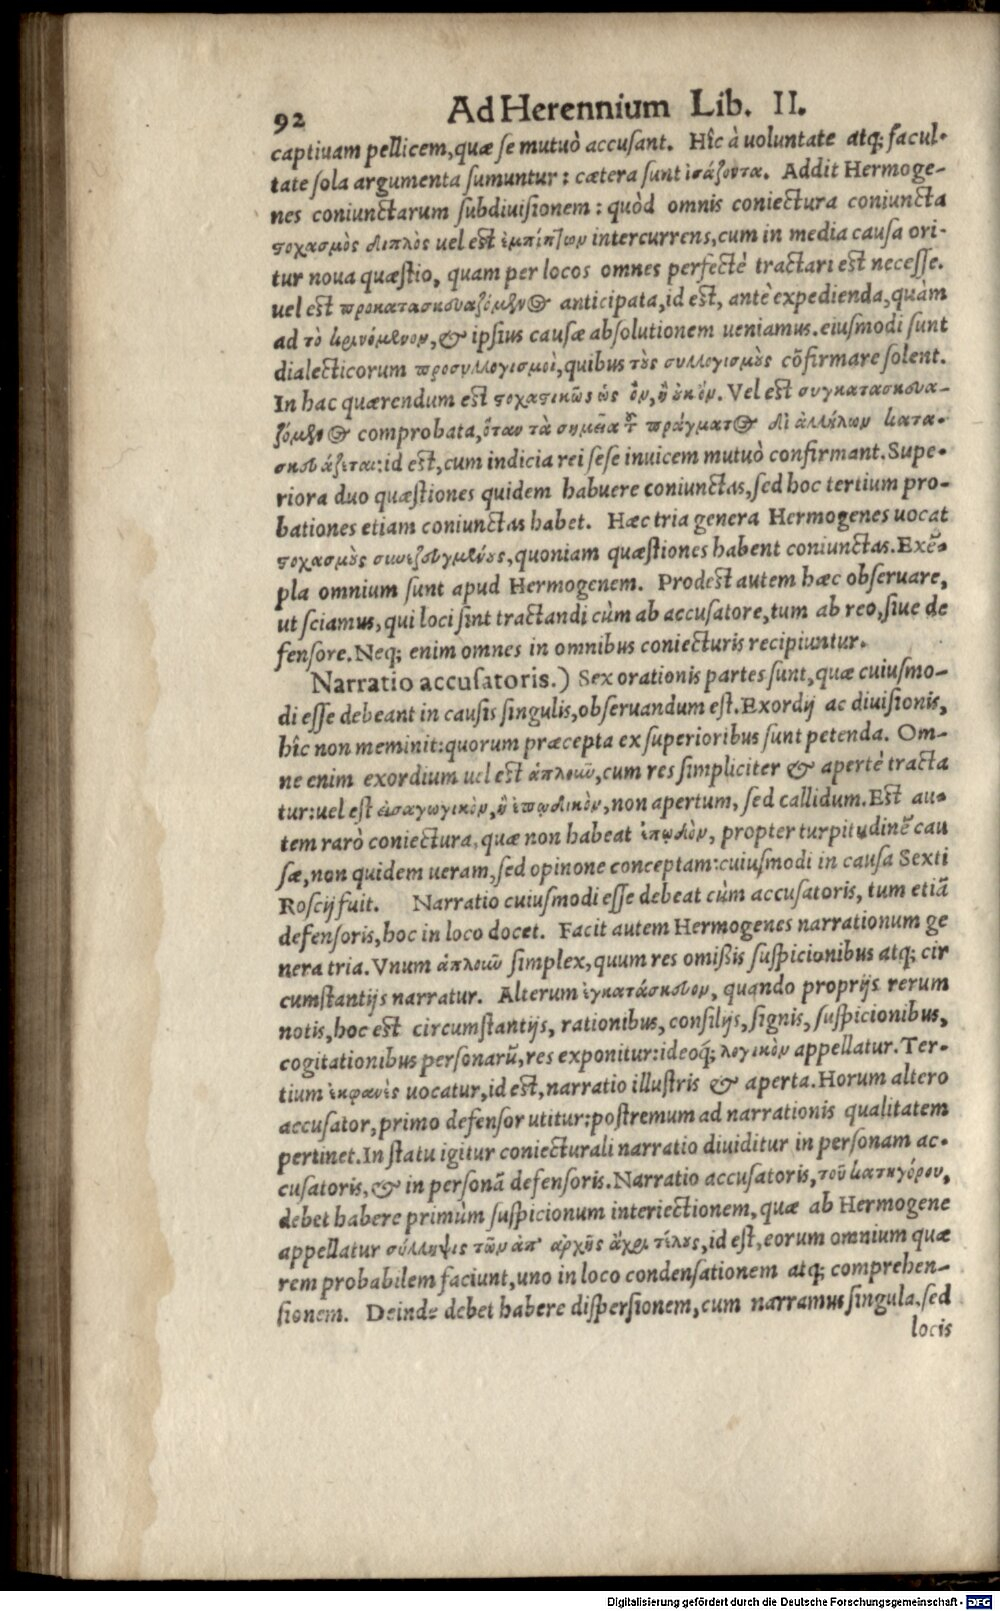 92 Ad Herennium Lib. II.
captiuam pellicem, quæ se mutuò accusant. Hîc à uoluntate atq; facul-
tate sola argumenta sumuntur: cætera sunt ἰσάζοντα. Addit Hermoge-
nes coniunctarum subdiuisionem: quòd omnis coniectura coniuncta
στοχασμὸς διπλὸς uel est ἐμπίπτων intercurrens, cum in media causa ori-
tur noua quæstio, quam per locos omnes perfectè tractari est necesse.
uel est προκατασκευαζόμενος anticipata, id est, antè expedienda, quàm
ad τὸ κρινόμενον, & ipsius causæ absolutionem ueniamus. eiusmodi sunt
dialecticorum προσυλλογισμοὶ, quibus τοὺς συλλογισμοὺς cõfirmare solent.
In hac quærendum est στοχαστικῶς ὡς ὂν, ἢ οὐκ ὄν. Vel est συγκατασκευα-
ζόμενος comprobata, ὅταν τὰ σημεῖα τοῦ πράγματος δι ἀλλήλων κατα-
σκευάζεται: id est, cum indicia rei sese inuicem mutuò confirmant. Supe-
riora duo quæstiones quidem habuere coniunctas, sed hoc tertium pro-
bationes etiam coniunctas habet. Hæc tria genera Hermogenes uocat
στοχασμοὺς συνεζευγμένους, quoniam quæstiones habent coniunctas. Exẽ-
pla omnium sunt apud Hermogenem. Prodest autem hæc obseruare,
ut sciamus, qui loci sint tractandi cùm ab accusatore, tum ab reo, siue de
fensore. Neq; enim omnes in omnibus coniecturis recipiuntur.
Narratio accusatoris.) Sex orationis partes sunt, quæ cuiusmo-
di esse debeant in causis singulis, obseruandum est. Exordij ac diuisionis,
hîc non meminit: quorum præcepta ex superioribus sunt petenda. Om-
ne enim exordium uel est ἁπλοιοῦν, cum res simpliciter & apertè tracta
tur: uel est εἰσαγωγικὸν, ἢ ἐπῳδικὸν, non apertum, sed callidum. Est au-
tem rarò coniectura, quæ non habeat ἐπῳδὸν, propter turpitudinẽ cau
sæ, non quidem ueram, sed opinone conceptam: cuiusmodi in causa Sexti
Roscij fuit. Narratio cuiusmodi esse debeat cùm accusatoris, tum etiã
defensoris, hoc in loco docet. Facit autem Hermogenes narrationum ge
nera tria. Vnum ἁπλοιοῦν simplex, quum res omißis suspicionibus atq; cir
cumstantijs narratur. Alterum ἐγκατάσκευον, quando proprijs rerum
notis, hoc est circumstantijs, rationibus, consilijs, signis, suspicionibus,
cogitationibus personarũ, res exponitur: ideoq́; λογικὸν appellatur. Ter-
tium ἐκφανὲς uocatur, id est, narratio illustris & aperta. Horum altero
accusator, primo defensor utitur: postremum ad narrationis qualitatem
pertinet. In statu igitur coniecturali narratio diuiditur in personam ac-
cusatoris, & in personã defensoris. Narratio accusatoris, τοῦ κατηγόρου,
debet habere primùm suspicionum interiectionem, quæ ab Hermogene
appellatur σύλληψις τῶν ἀπ' ἀρχῆς ἄχρι τέλους, id est, eorum omnium quæ
rem probabilem faciunt, uno in loco condensationem atq; comprehen-
sionem. Deinde debet habere dispersionem, cum narramus singula, sed
locis
Digitalisierung gefördert durch die Deutsche Forschungsgemeinschaft - DFG